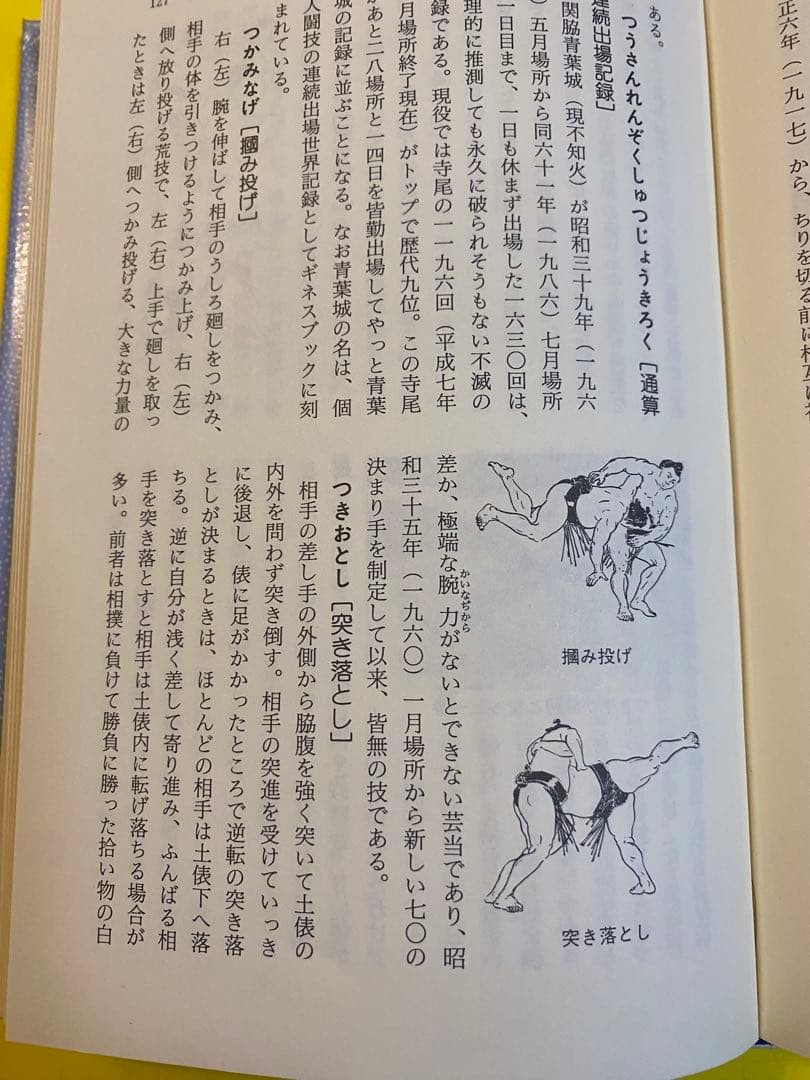 正六年（一九一七）から、ちりを切る前に
ある。
つうさんれんぞくしゅつじょうきろく［通算
連続出場記録］
関脇青葉城（現不知火）が昭和三十九年（一九六
）五月場所から同六十一年（一九八六）七月場所
一日目まで、一日も休まず出場した一六三〇回は、
理的に推測しても永久に破られそうもない不滅の
録である。現役では寺尾の一一九六回（平成七年
月場所終了現在）がトップで歴代九位。この寺尾
があと二八場所と一四日を皆勤出場してやっと青葉
城の記録に並ぶことになる。なお青葉城の名は、個
人闘技の連続出場世界記録としてギネスブックに刻
まれている。
つかみなげ［摑み投げ］
右（左）腕を伸ばして相手のうしろ廻しをつかみ、
相手の体を引きつけるようにつかみ上げ、右（左）
側へ放り投げる荒技で、左（右）上手で廻しを取っ
たときは左（右）側へつかみ投げる、大きな力量の
127
摑み投げ
突き落とし
差か、極端な腕力がないとできない芸当であり、昭
かいなぢから
和三十五年（一九六〇）一月場所から新しい七〇の
決まり手を制定して以来、皆無の技である。
つきおとし［突き落とし］
相手の差し手の外側から脇腹を強く突いて土俵の
内外を問わず突き倒す。相手の突進を受けていっき
に後退し、俵に足がかかったところで逆転の突き落
としが決まるときは、ほとんどの相手は土俵下へ落
ちる。逆に自分が浅く差して寄り進み、ふんばる相
手を突き落とすと相手は土俵内に転げ落ちる場合が
多い。前者は相撲に負けて勝負に勝った拾い物の白